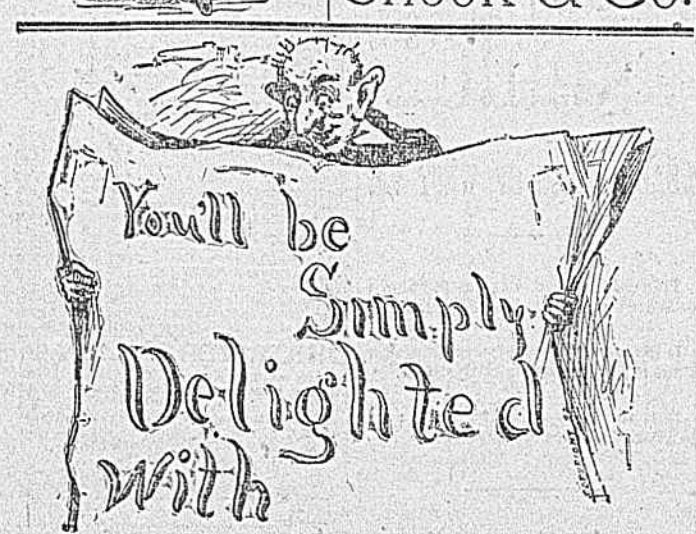 & Co.
You'll be
Simply
Delighted
with